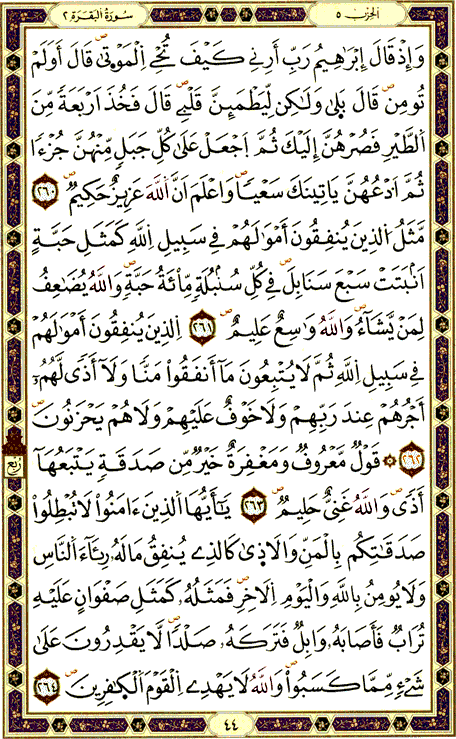 الحزب ٥
سورة البقرة ٢
وَإِذْ قَالَ إِبْرَٰهِيمُ رَبِّ أَرِنِے كَيْفَ تُحْيِ اِ۬لْمَوْت۪يٰ قَالَ أَوَلَمْ
تُومِنۖ قَالَ بَل۪يٰ وَلَٰكِن لِّيَطْمَئِنَّ قَلْبِےۖ قَالَ فَخُذَ اَرْبَعَةٗ مِّنَ
اَ۬لطَّيْرِ فَصُرْهُنَّ إِلَيْكَ ثُمَّ اَ۪جْعَلْ عَلَيٰ كُلِّ جَبَلٖ مِّنْهُنَّ جُزْءاٗ
ثُمَّ اَ۟دْعُهُنَّ يَاتِينَكَ سَعْياٗۖ وَاعْلَمَ اَنَّ اَ۬للَّهَ عَزِيزٌ حَكِيمٞۖ ٢٦٠
مَّثَلُ اُ۬لذِينَ يُنفِقُونَ أَمْوَٰلَهُمْ فِے سَبِيلِ اِ۬للَّهِ كَمَثَلِ حَبَّةٍ
اَنۢبَتَتْ سَبْعَ سَنَابِلَ فِے كُلِّ سُنۢبُلَةٖ مِّاْئَةُ حَبَّةٖۖ وَاللَّهُ يُضَٰعِفُ
لِمَنْ يَّشَآءُۖ وَاللَّهُ وَٰسِعٌ عَلِيمٌۖ ٢٦١ اِ۬لذِينَ يُنفِقُونَ أَمْوَٰلَهُمْ
فِے سَبِيلِ اِ۬للَّهِ ثُمَّ لَا يُتْبِعُونَ مَآ أَنفَقُواْ مَنّاٗ وَلَآ أَذىٗ لَّهُمُۥٓ
أَجْرُهُمْ عِندَ رَبِّهِمْ وَلَا خَوْفٌ عَلَيْهِمْ وَلَا هُمْ يَحْزَنُونَۖ
٢٦٢ ۞ قَوْلٞ مَّعْرُوفٞ وَمَغْفِرَةٌ خَيْرٞ مِّن صَدَقَةٖ يَتْبَعُهَآ
ربع
أَذىٗۖ وَاللَّهُ غَنِيٌّ حَلِيمٞۖ ٢٦٣ يَٰٓأَيُّهَا اَ۬لذِينَ ءَامَنُواْ لَا تُبْطِلُواْ
صَدَقَٰتِكُم بِالْمَنِّ وَالَاذ۪يٰ كَالذِے يُنفِقُ مَالَهُۥ رِئَآءَ اَ۬لنَّاسِ
وَلَا يُومِنُ بِاللَّهِ وَالْيَوْمِ اِ۬لَاخِرِۖ فَمَثَلُهُۥ كَمَثَلِ صَفْوَانٍ عَلَيْهِ
تُرَابٞ فَأَصَابَهُۥ وَابِلٞ فَتَرَكَهُۥ صَلْداٗۖ لَّا يَقْدِرُونَ عَلَيٰ
شَےْءٖ مِّمَّا كَسَبُواْۖ وَاللَّهُ لَا يَهْدِے اِ۬لْقَوْمَ اَ۬لْكَٰفِرِينَۖ ٢٦٤
٤٤